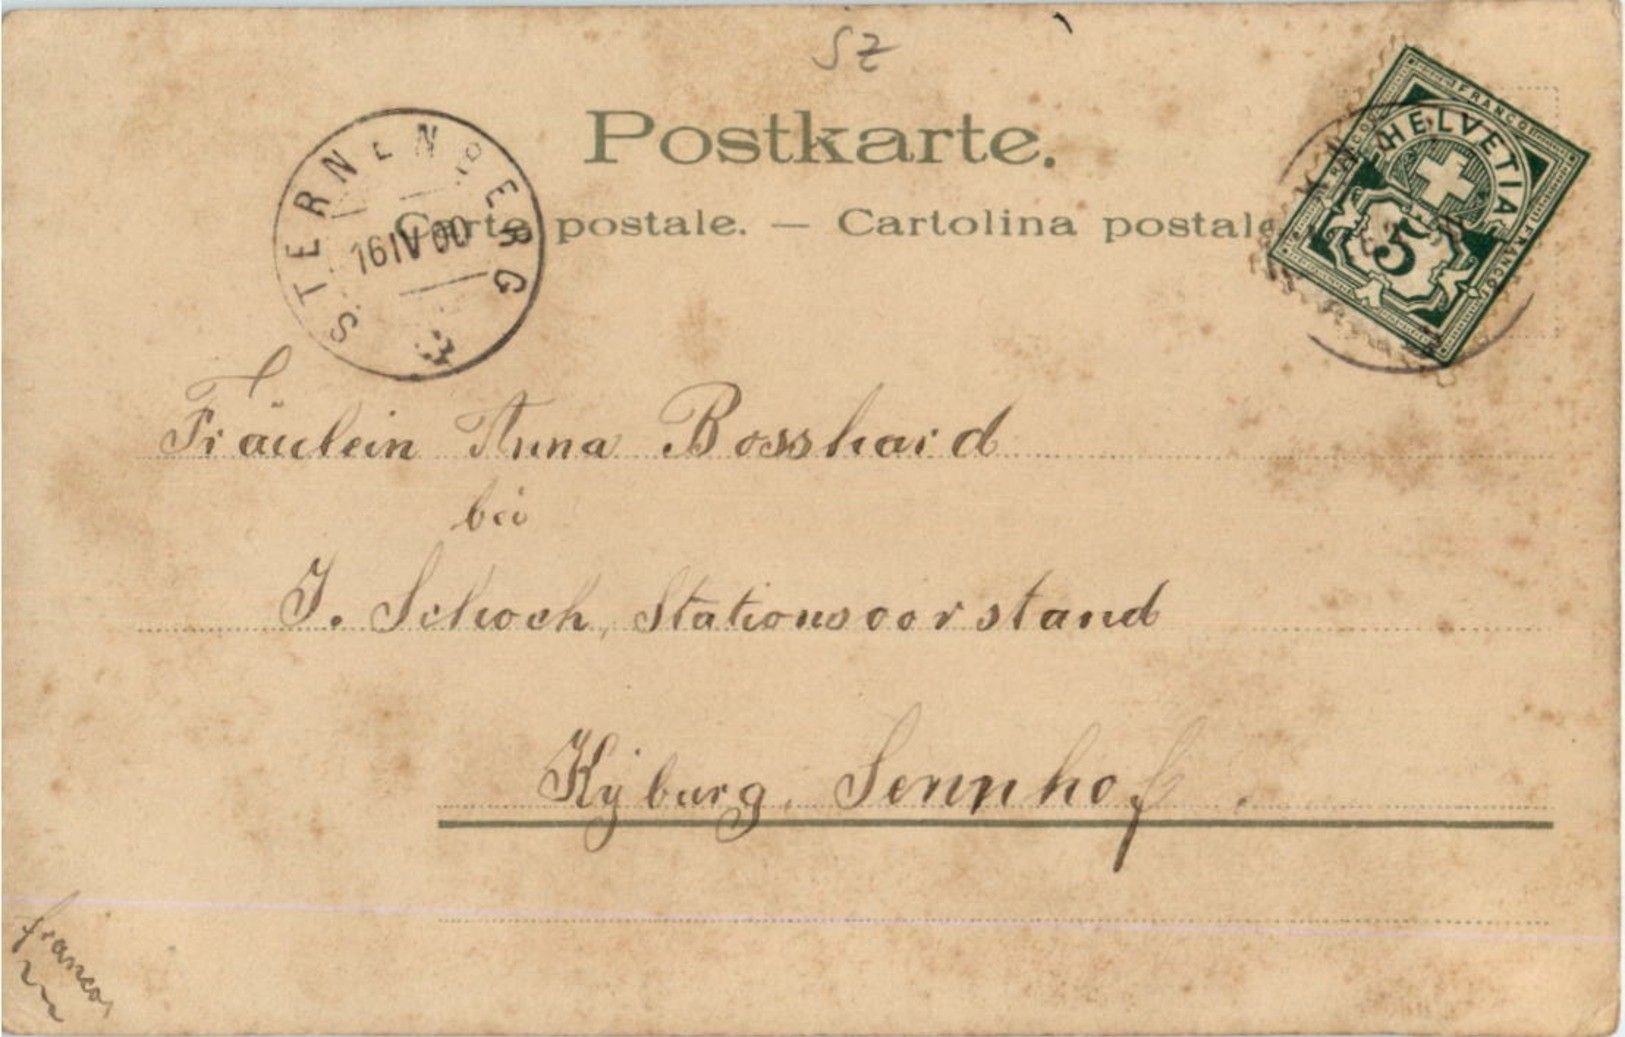 SZ
Postkarte.
Carte postale. — Cartolina postale
STERNENBERG
16 IV 00
FRANCO
HELVETIA
FRANCO
FRANCO
5
Fräulein Anna Bosshard
bei
J. Schoch, Stationsvorstand
Kÿburg, Sennhof.
franco,